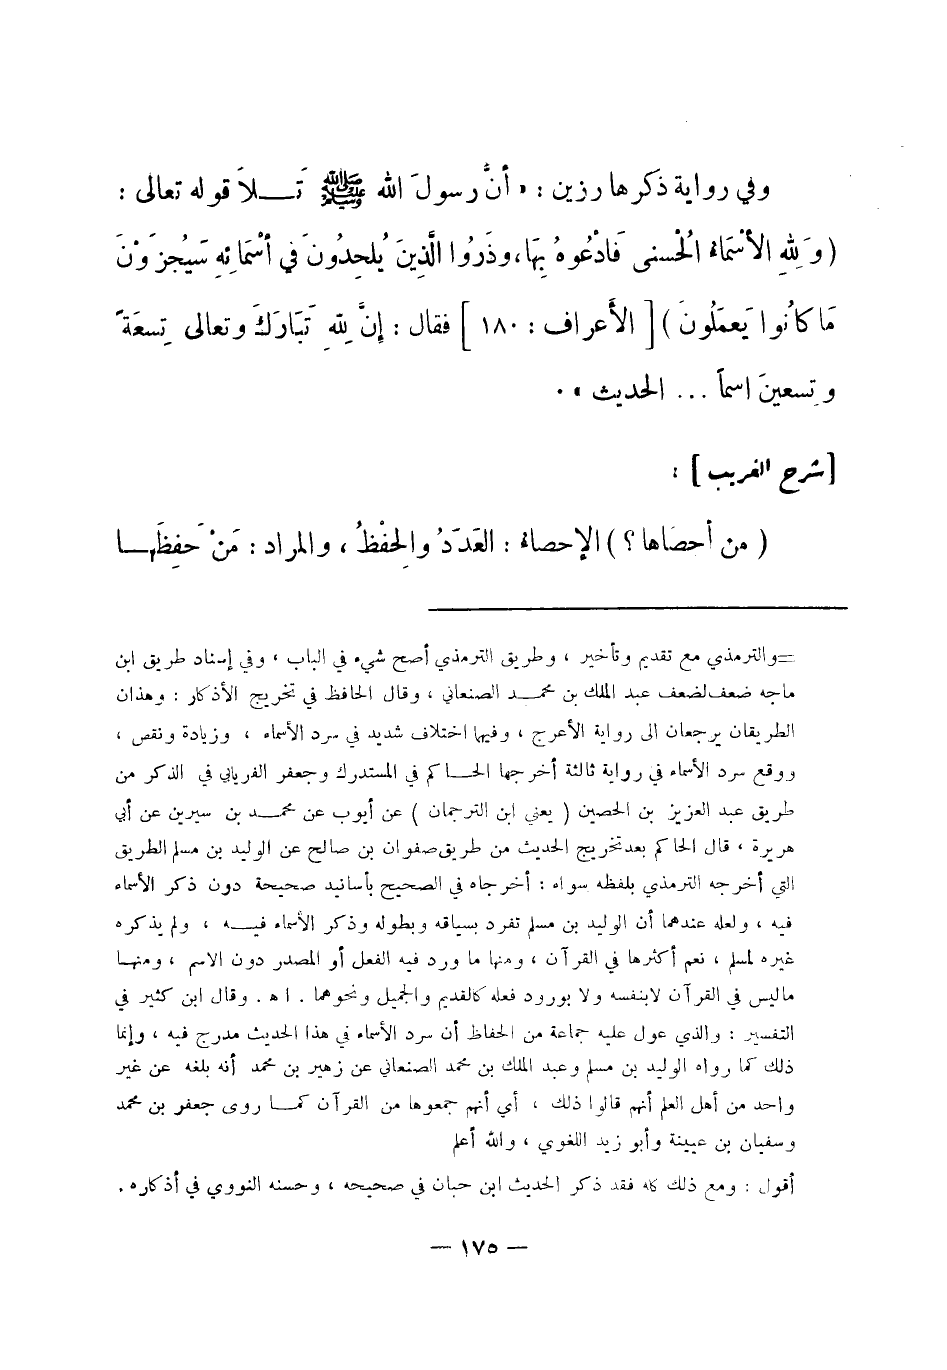 وفي رواية ذكرها رزين : « أنَّ رسولَ الله ﷺ تَــلاَ قوله تعالى :
( وَلِلهِ الأَسْمَاءُ الْحُسنى فَادْعُوهُ بِهَا، وذَرُوا الَّذِينَ يُلحِدُونَ في أَسْمَائِهِ سَيُجزَوْنَ
مَا كَانُوا يَعمَلُونَ ) [ الأَعراف : ١٨٠ ] فقال : إنَّ لِلّهِ تَبَارَكَ وتعالى تِسعَةً
وتِسعينَ اسماً ... الحديث » .
[ شرح الغريب ] :
( من أحصَاها ؟ ) الإحصاءُ : العَدَدُ والحِفْظُ ، والمراد : مَنْ حَفِظَهـا
=والترمذي مع تقديم وتأخير ، وطريق الترمذي أصح شيء في الباب ، وفي إسناد طريق ابن
ماجه ضعف لضعف عبد الملك بن محمـد الصنعاني ، وقال الحافظ في تخريج الأذكار : وهذان
الطريقان يرجعان الى رواية الأعرج ، وفيها اختلاف شديد في سرد الأسماء ، وزيادة ونقص ،
ووقع سرد الأسماء في رواية ثالثة أخرجها الحـاكم في المستدرك وجعفر الفريابي في الذكر من
طريق عبد العزيز بن الحصين ( يعني ابن الترجمان ) عن أيوب عن محمـد بن سيرين عن أبي
هريرة ، قال الحاكم بعد تخريج الحديث من طريق صفوان بن صالح عن الوليد بن مسلم الطريق
التي أخرجه الترمذي بلفظه سواء : أخرجاه في الصحيح بأسانيد صحيحة دون ذكر الأسماء
فيه ، ولعله عندهما أن الوليد بن مسلم تفرد بسياقه وبطوله وذكر الأسماء فيـه ، ولم يذكره
غيره لمسلم ، نعم أكثرها في القرآن ، ومنها ما ورد فيه الفعل أو المصدر دون الاسم ، ومنهـا
ماليس في القرآن لا بنفسه ولا بورود فعله كالقديم والجميل ونحوهما . ا ه . وقال ابن كثير في
التفسير : والذي عول عليه جماعة من الحفاظ أن سرد الأسماء في هذا الحديث مدرج فيه ، وإنما
ذلك كما رواه الوليد بن مسلم وعبد الملك بن محمد الصنعاني عن زهير بن محمد أنه بلغه عن غير
واحد من أهل العلم أنهم قالوا ذلك ، أي أنهم جمعوها من القرآن كمـا روى جعفر بن محمد
وسفيان بن عيينة وأبو زيد اللغوي ، والله أعلم
أقول : ومع ذلك كله فقد ذكر الحديث ابن حبان في صحيحه ، وحسنه النووي في أذكاره .
— ١٧٥ —